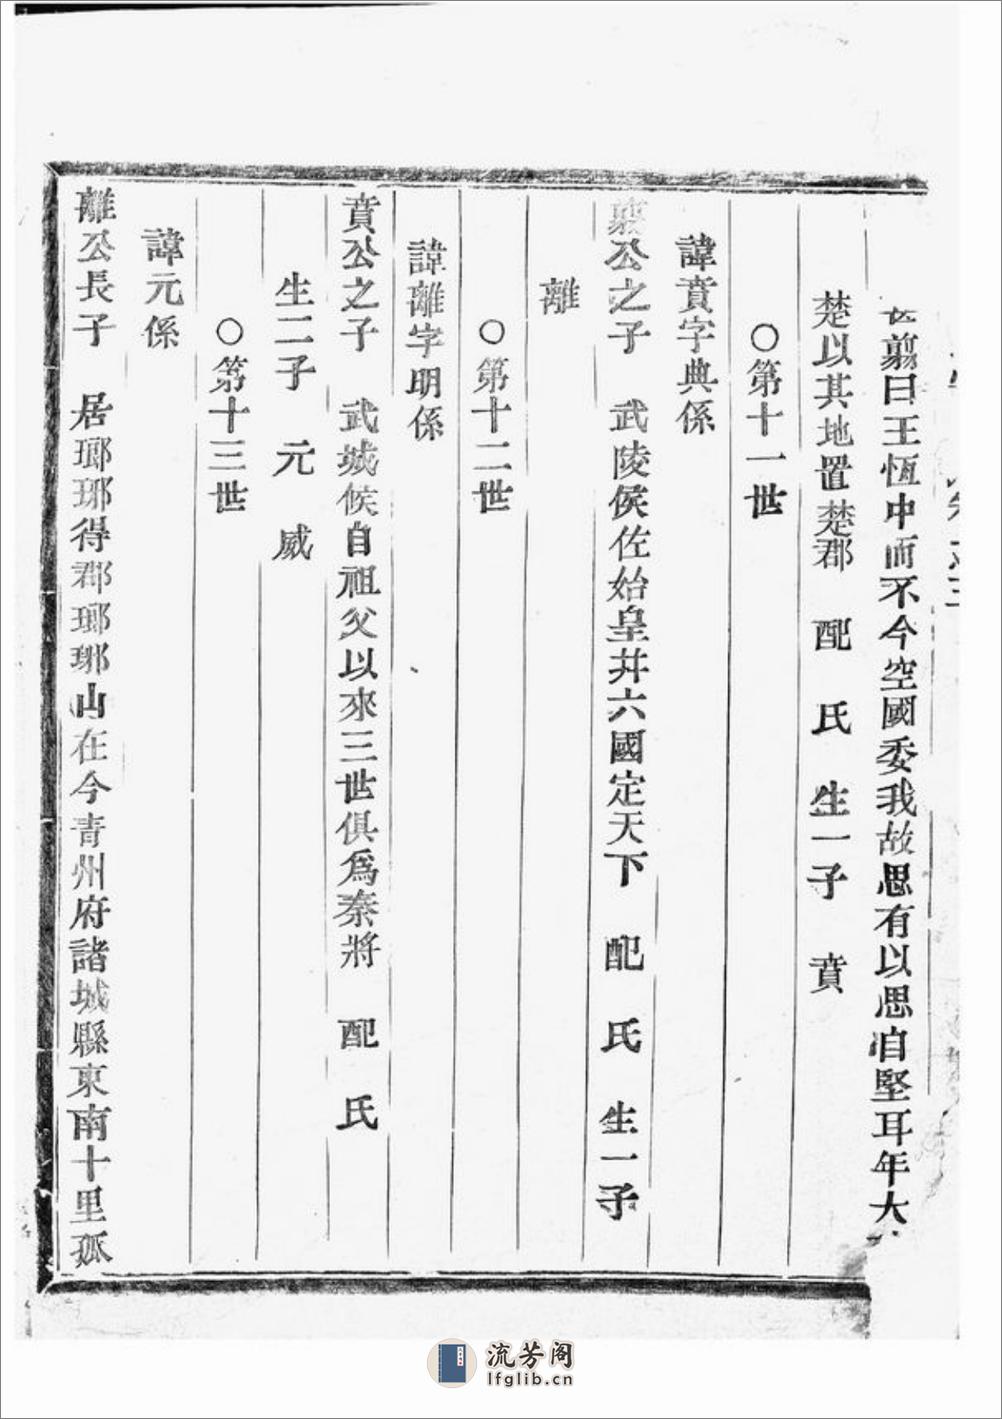 翦曰王恆中而不今空國委我故思有以思自堅耳年大
楚以其地置楚郡 配 氏 生一子 賁
○第十一世
諱賁字典係
翦公之子 武陵侯佐始皇并六國定天下 配 氏 生一子
離
○第十二世
諱離字明係
賁公之子 武城候自祖父以來三世俱為秦將 配 氏
生二子 元 威
○第十三世
諱元係
離公長子 居瑯琊得郡瑯琊山在今青州府諸城縣東南十里孤
流芳阁
lfglib.cn